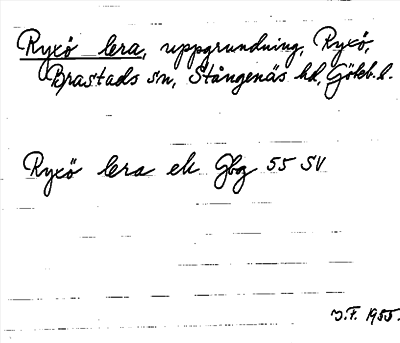 Ryxö lera, uppgrundning, Ryxö,
Brastads sn, Stångenäs hd, Götb. l.
Ryxö lera ek Gbg 55 SV
J.F. 1955.